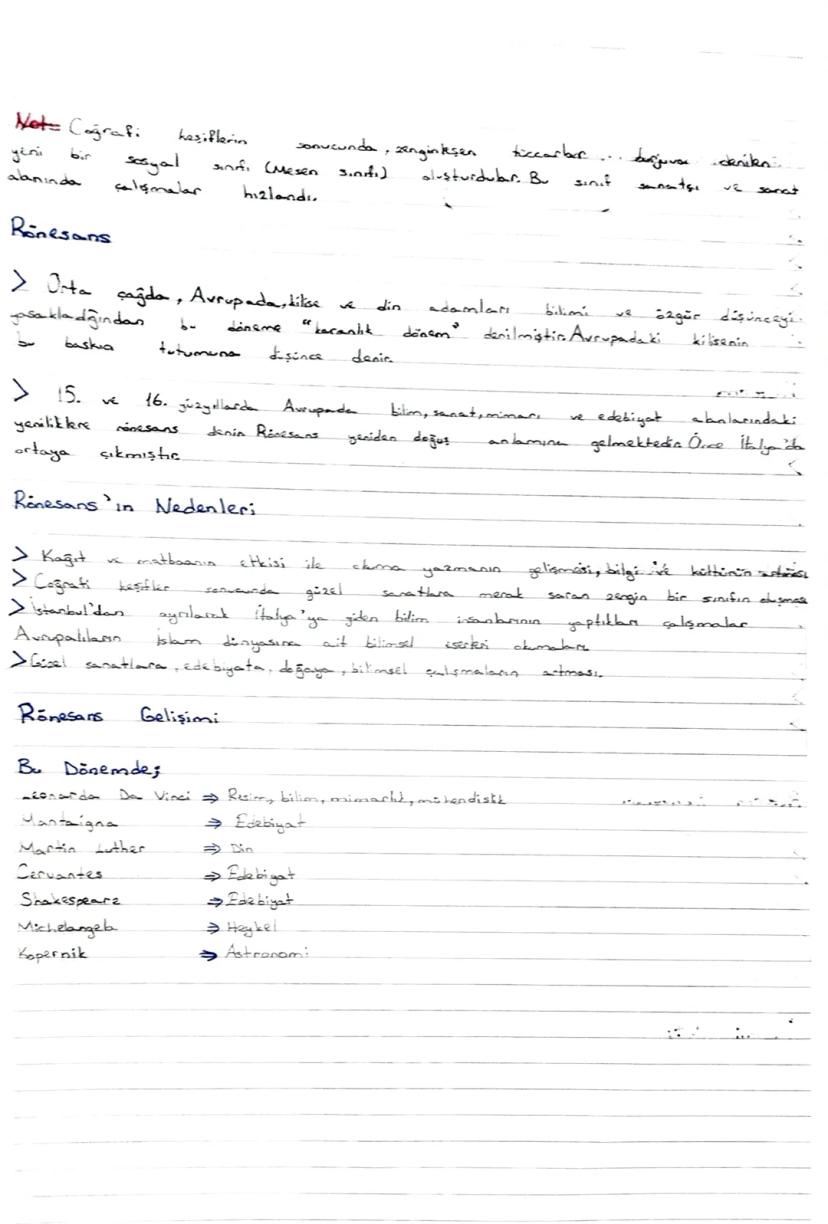 Not= Coğrafi keşiflerin sonucunda, zenginleşen tüccarlar ... burjuva denilen
yeni bir sosyal sınıfı (Mesen sınıfı) oluşturdular. Bu sınıf sanatçı ve sanat
alanında çalışmalar hızlandı.
Rönesans
> Orta çağda, Avrupada, kilise ve din adamları bilimi ve özgür düşünceyi
yasakladığından bu döneme "karanlık dönem" denilmiştir. Avrupadaki kilisenin
bu baskıcı tutumuna düşünce denir.
> 15. ve 16. yüzyıllarda Avrupada bilim, sanat, mimari ve edebiyat alanlarındaki
yeniliklere rönesans denir. Rönesans yeniden doğuş anlamına gelmektedir. Önce İtalya'da
ortaya çıkmıştır.
Rönesans'ın Nedenleri
> Kağıt ve matbaanın etkisi ile okuma yazmanın gelişmesi, bilgi ve kültürün artması
> Coğrafi keşifler sonucunda güzel sanatlara merak saran zengin bir sınıfın oluşması
> İstanbul'dan ayrılarak İtalya'ya giden bilim insanlarının yaptıkları çalışmalar
Avrupalıların İslam dünyasına ait bilimsel eserleri okumaları
> Güzel sanatlara, edebiyata, doğaya, bilimsel çalışmaların artması.
Rönesans Gelişimi
Bu Dönemde;
Leonardo Da Vinci ⇒ Resim, bilim, mimarlık, mühendislik
Mantaigna ⇒ Edebiyat
Martin Luther ⇒ Din
Cervantes ⇒ Edebiyat
Shakespeare ⇒ Edebiyat
Michelangelo ⇒ Heykel
Kopernik ⇒ Astronomi